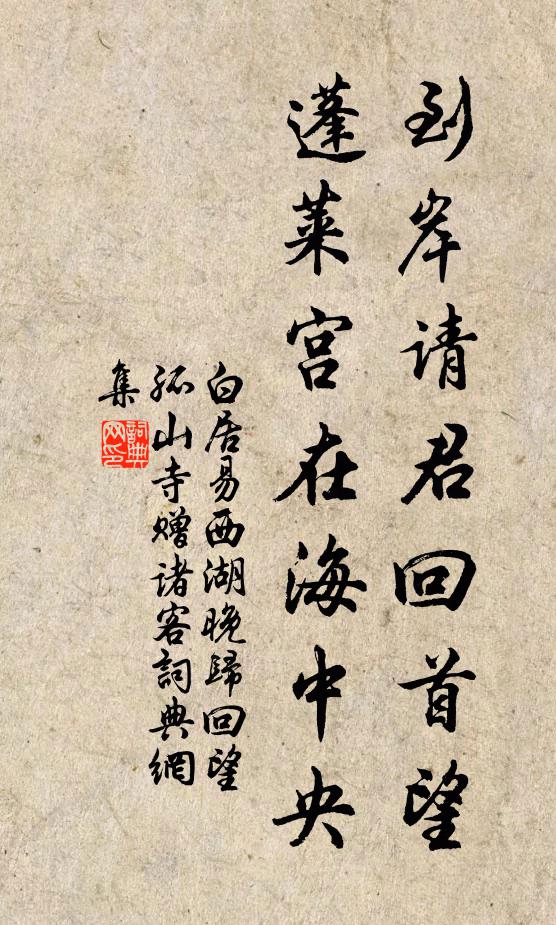 到岸请君回首望
蓬莱宫在海中央
白居易西湖晚歸回望
孤山寺赠诸客詞典網
集
詞典
网印